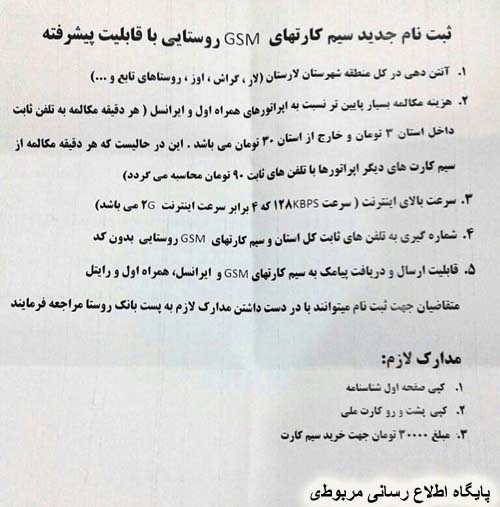 ثبت نام جدید سیم کارتهای GSM روستایی با قابلیت پیشرفته
۱. آنتن دهی در کل منطقه شهرستان لارستان (لار ، گراش ، اوز ، روستاهای تابع و ...)
۲. هزینه مکالمه بسیار پایین تر نسبت به اپراتورهای همراه اول و ایرانسل ( هر دقیقه مکالمه به تلفن ثابت
داخل استان ۳ تومان و خارج از استان ۳۰ تومان می باشد . این در حالیست که هر دقیقه مکالمه از
سیم کارت های دیگر اپراتورها با تلفن های ثابت ۹۰ تومان محاسبه می گردد)
۳. سرعت بالای اینترنت ( سرعت ۱۲۸KBPS که ۴ برابر سرعت اینترنت ۲G می باشد)
۴. شماره گیری به تلفن های ثابت کل استان و سیم کارتهای GSM روستایی بدون کد
۵. قابلیت ارسال و دریافت پیامک به سیم کارتهای GSM و ایرانسل، همراه اول و رایتل
متقاضیان جهت ثبت نام میتوانند با در دست داشتن مدارک لازم به پست بانک روستا مراجعه فرمایند
مدارک لازم:
۱. کپی صفحه اول شناسنامه
۲. کپی پشت و رو کارت ملی
۳. مبلغ ۳۰۰۰۰ تومان جهت خرید سیم کارت
پایگاه اطلاع رسانی مربوطی